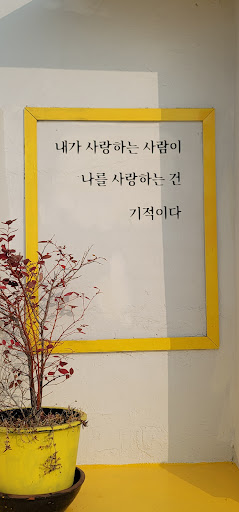 내가 사랑하는 사람이
나를 사랑하는 건
기적이다